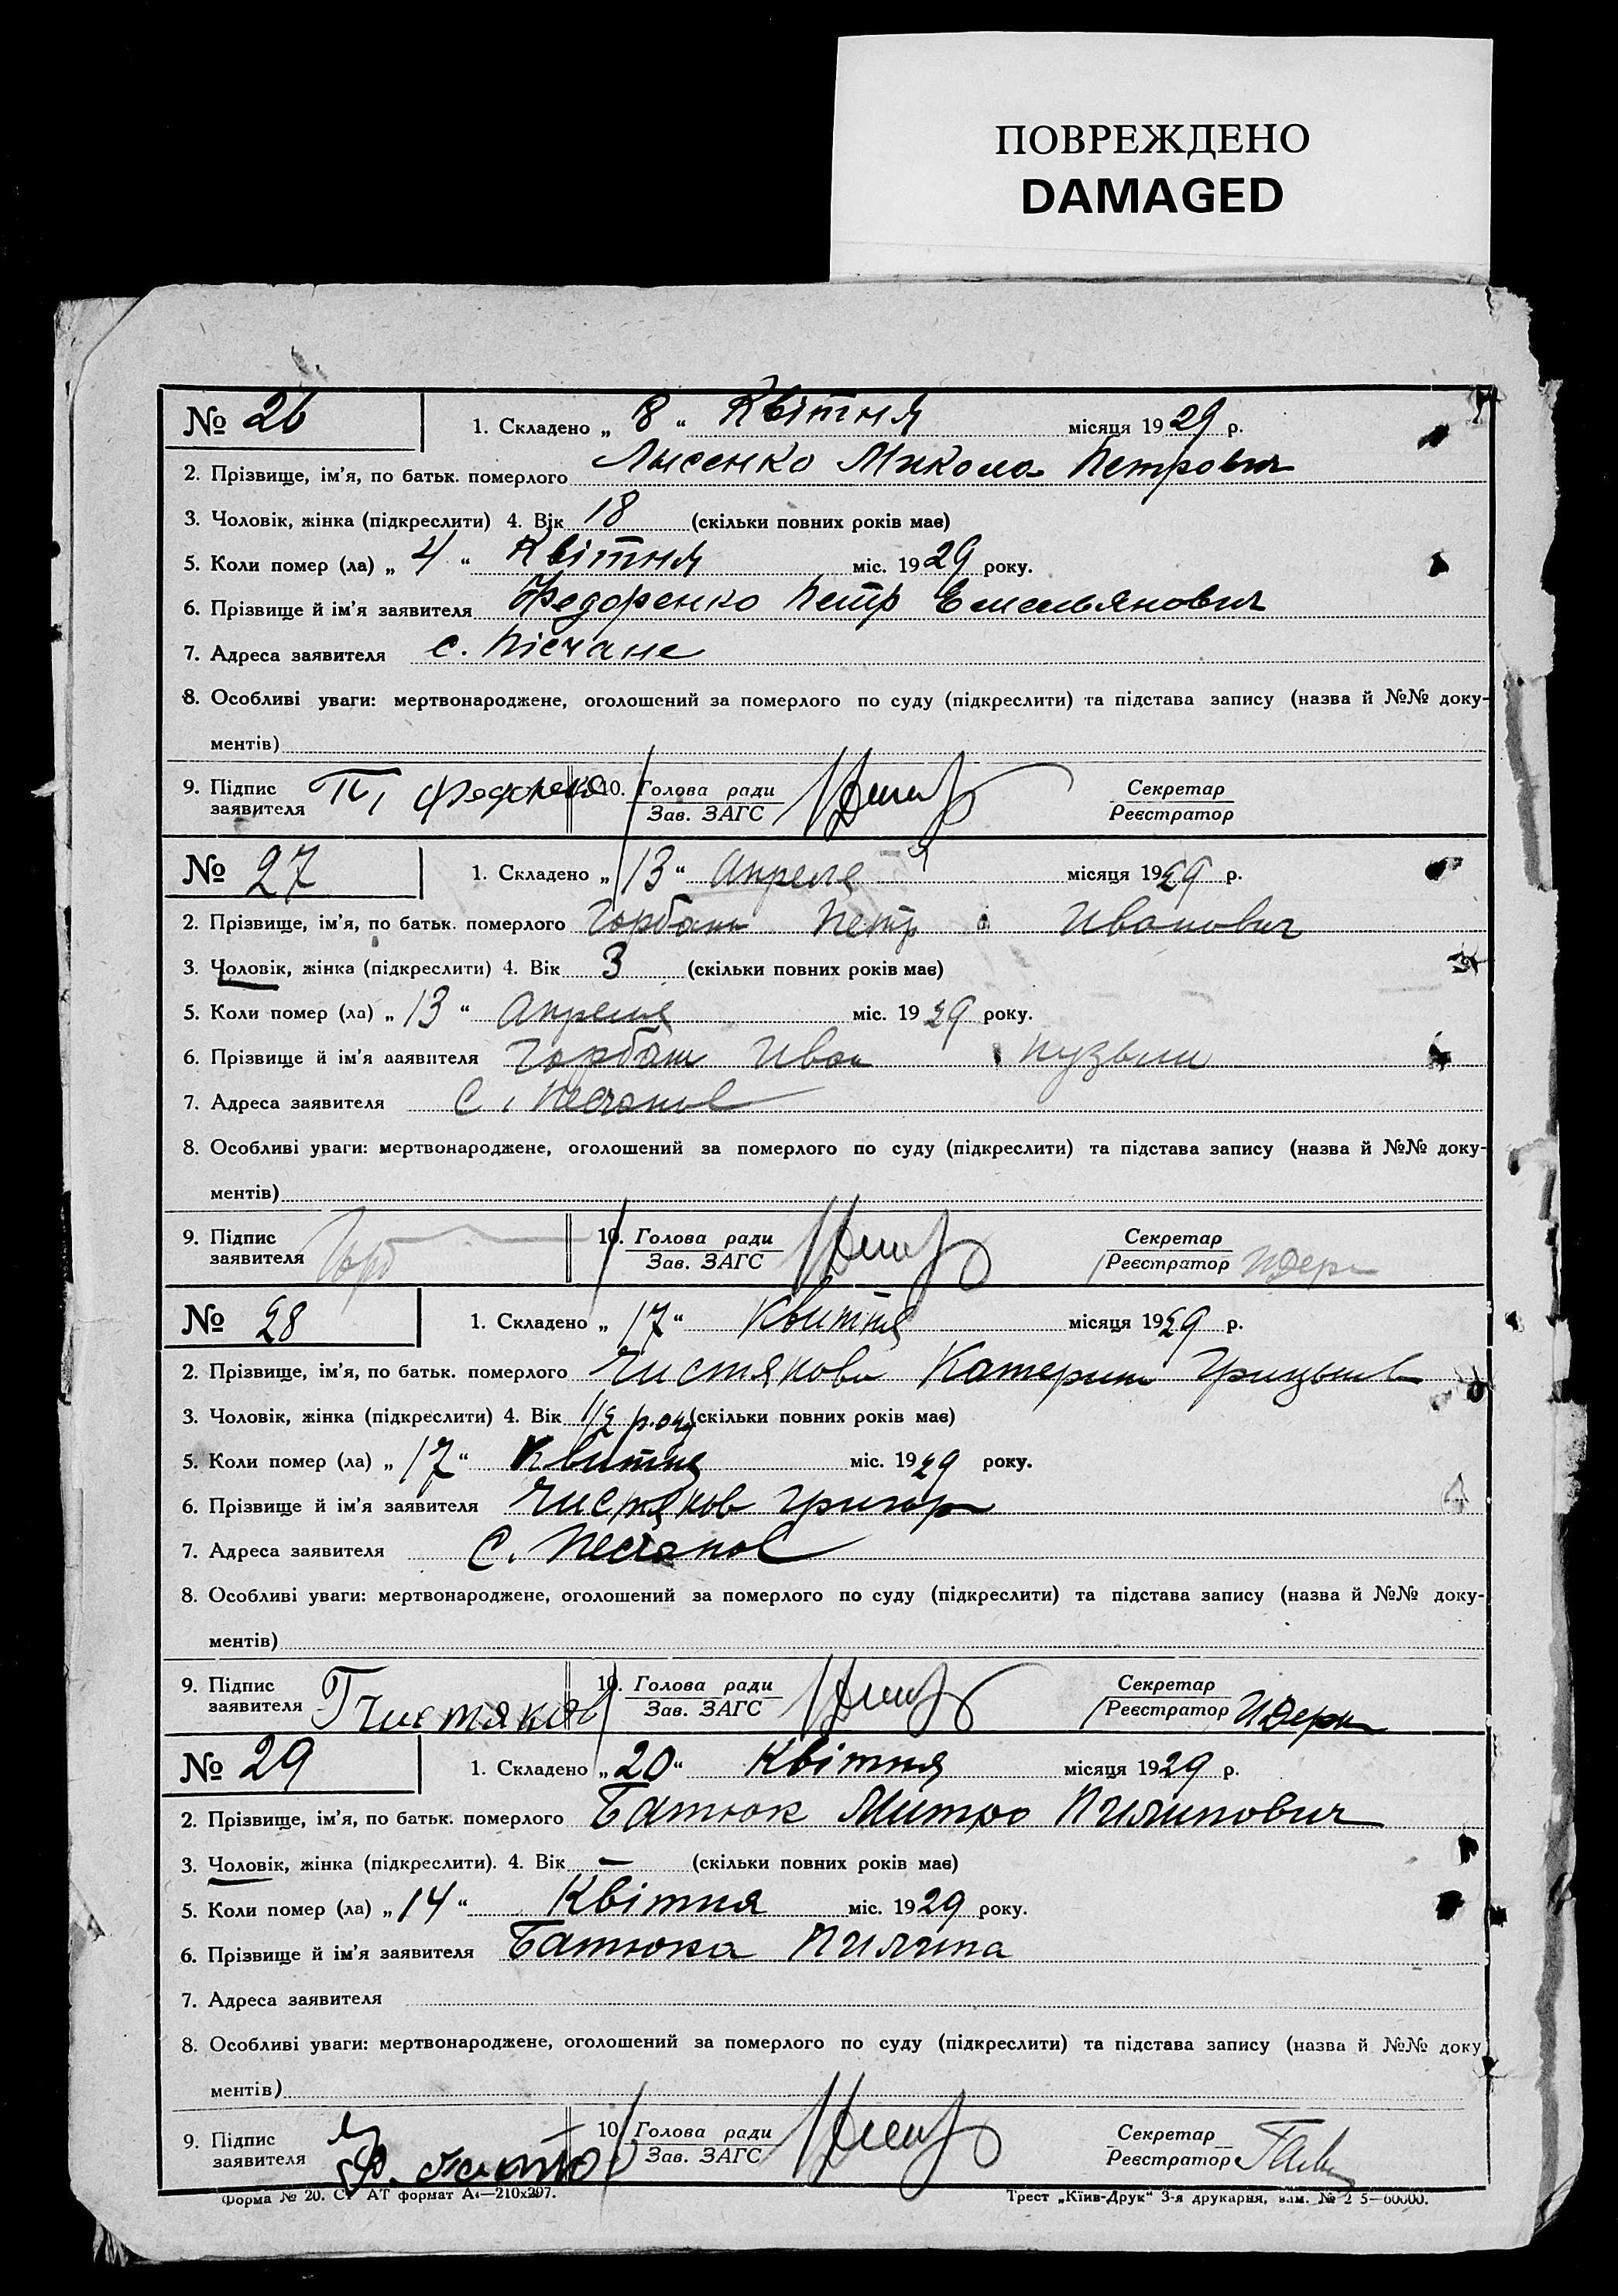 ПОВРЕЖДЕНО
DAMAGED
№ 26 1. Складено „ 8 “ Квітня місяця 1929 р.
2. Прізвище, ім'я, по батьк. померлого Лысенко Микола Петрович
3. Чоловік, жінка (підкреслити) 4. Вік 18 (скільки повних років має)
5. Коли помер (ла) „ 4 “ Квітня міс. 1929 року.
6. Прізвище й ім'я заявителя Федоренко Петр Емельянович
7. Адреса заявителя с. Пісчане
8. Особливі уваги: мертвонароджене, оголошений за померлого по суду (підкреслити) та підстава запису (назва й №№ доку-
ментів)
9. Підпис заявителя П, Федорено 10. Голова ради Зав. ЗАГС Секретар Реєстратор
№ 27 1. Складено „ 13 “ Апреля місяця 1929 р.
2. Прізвище, ім'я, по батьк. померлого Горбань Петр Иванович
3. Чоловік, жінка (підкреслити) 4. Вік 3 (скільки повних років має)
5. Коли помер (ла) „ 13 “ Апреля міс. 1929 року.
6. Прізвище й ім'я заявителя Горбань Иван
7. Адреса заявителя с. Песчаное
8. Особливі уваги: мертвонароджене, оголошений за померлого по суду (підкреслити) та підстава запису (назва й №№ доку-
ментів)
9. Підпис заявителя Горб 10. Голова ради Зав. ЗАГС Секретар Реєстратор
№ 28 1. Складено „ 17 “ Квитня місяця 1929 р.
2. Прізвище, ім'я, по батьк. померлого Чистякова Катерина
3. Чоловік, жінка (підкреслити) 4. Вік 1/2 року (скільки повних років має)
5. Коли помер (ла) „ 17 “ Квитня міс. 1929 року.
6. Прізвище й ім'я заявителя Чистяков Григор
7. Адреса заявителя с. Песчаное
8. Особливі уваги: мертвонароджене, оголошений за померлого по суду (підкреслити) та підстава запису (назва й №№ доку-
ментів)
9. Підпис заявителя Г Чистяков 10. Голова ради Зав. ЗАГС Секретар Реєстратор
№ 29 1. Складено „ 20 “ Квітня місяця 1929 р.
2. Прізвище, ім'я, по батьк. померлого Батюк Митро Пилипович
3. Чоловік, жінка (підкреслити). 4. Вік — (скільки повних років має)
5. Коли помер (ла) „ 14 “ Квітня міс. 1929 року.
6. Прізвище й ім'я заявителя Батюка Пилипа
7. Адреса заявителя
8. Особливі уваги: мертвонароджене, оголошений за померлого по суду (підкреслити) та підстава запису (назва й №№ доку
ментів)
9. Підпис заявителя 10. Голова ради Зав. ЗАГС Секретар Реєстратор
Форма № 20. Ст АТ формат А4—210х297. Трест „Київ-Друк“ 3-я друкарня, зам. № 2 5—60000.